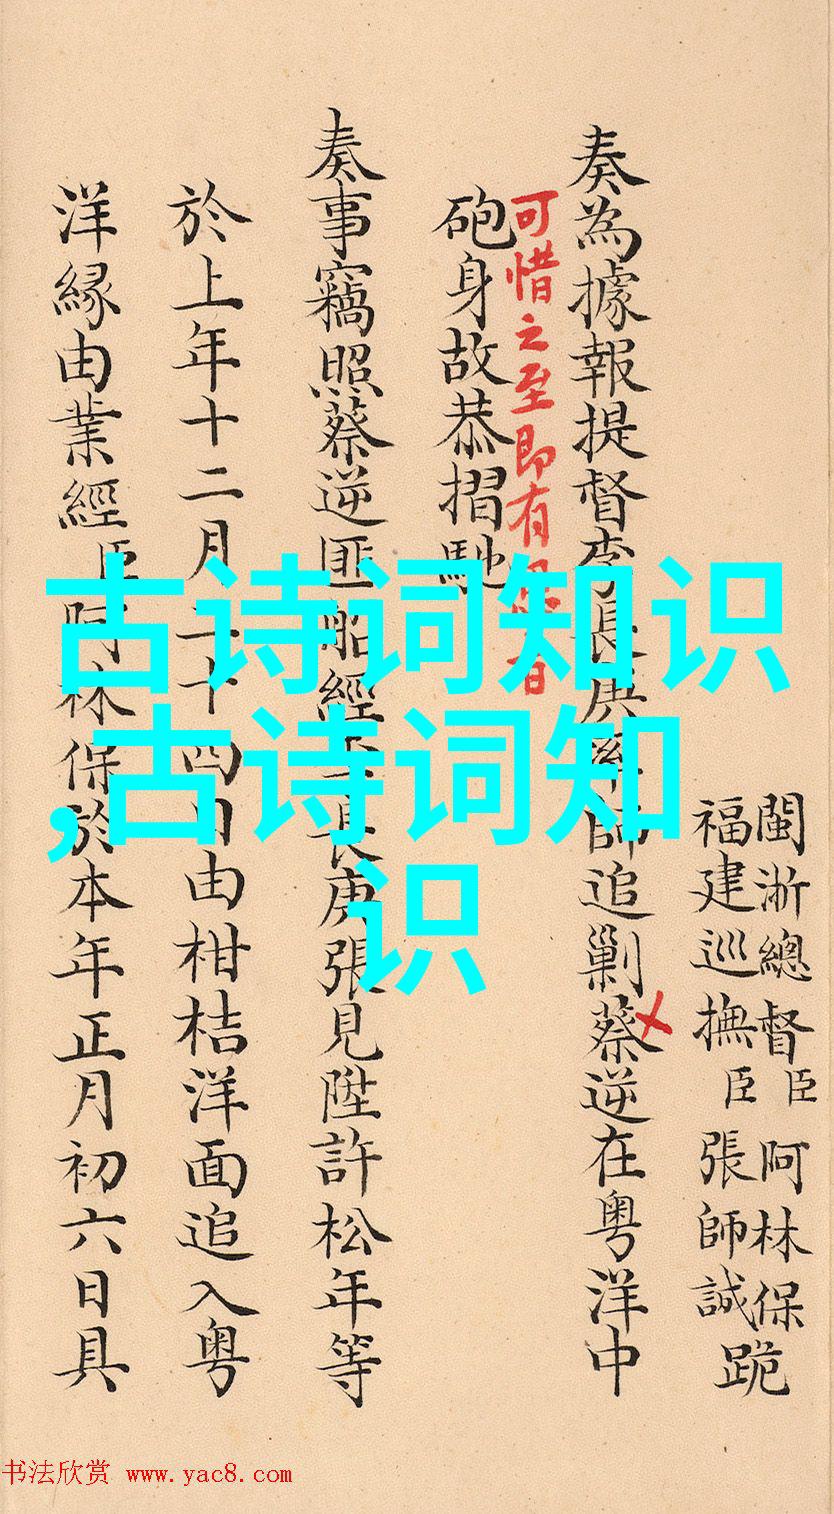 闽浙總督臣阿林保跪
福建巡撫臣張師誠
奏為據報提督李長庚 師追剿蔡逆在粤洋中
可惜之至即有 旨
砲身故恭摺馳
奏事竊照蔡逆匪船經 長庚張見陞許松年等
於上年十二月二十四日由柑桔洋面追入粤
洋緣由業經臣阿林保於本年正月初六日具
古诗词知识
,古诗词知
识
书法欣赏 www.yac8.com